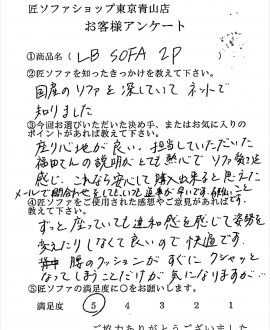 匠ソファショップ東京青山店
お客様アンケート
①商品名( LB SOFA 2P )
②匠ソファを知ったきっかけを教えて下さい。
国産のソファを探していて ネットで
知りました
③今回お選びいただいた決め手、またはお気に入りの
ポイントがあれば教えて下さい。
座り心地が良い。担当していただいた
福田さんの説明がとても熱心で ソファ愛を
感じ、これなら安心して購入出来ると思えた
メールで問合わせをしていても返事が早いです。
④匠ソファを使用された感想やご意見があれば
教えて下さい。
ずっと座っていても違和感を感じて姿勢を
変えたりしなくて良いので快適です。
腰のクッションが すぐに クシャッと
なってしまうことだけが 気になりますが…
⑤匠ソファの満足度に○をお願いします。
満足度 5 4 3 2 1
ご協力ありがとうございました